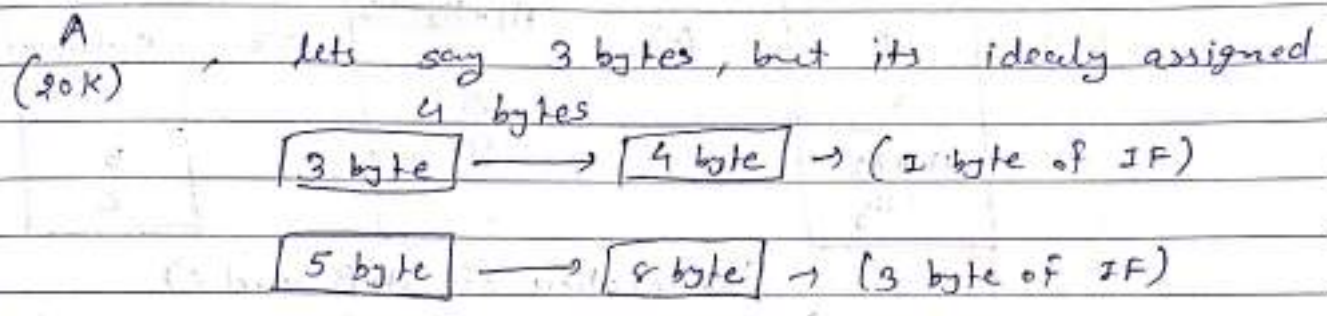 A
(20K) , lets say 3 bytes, but its idealy assigned
4 bytes
3 byte → 4 byte → (1 byte of IF)
5 byte → 8 byte → (3 byte of IF)